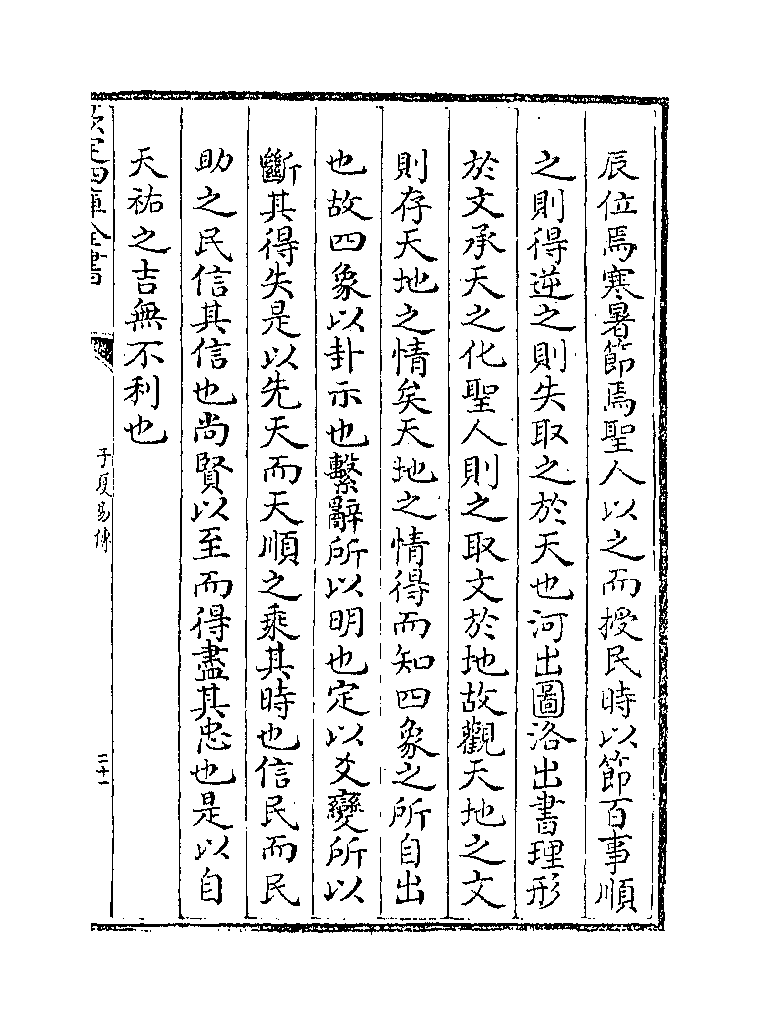 辰位焉寒暑節焉聖人以之而授民時以節百事順
之則得逆之則失取之於天也河出圖洛出書理形
於文承天之化聖人則之取文於地故觀天地之文
則存天地之情矣天地之情得而知四象之所自出
也故四象以卦示也繫辭所以明也定以爻變所以
斷其得失是以先天而天順之乘其時也信民而民
助之民信其信也尚賢以至而得盡其忠也是以自
天祐之吉無不利也
欽定四庫全書
子夏易傳
二十一